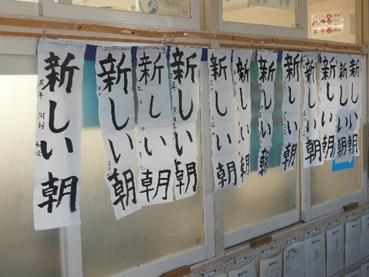 新しい朝
新しい朝
新しい朝
新しい朝
新しい朝
新しい朝
新しい朝
新しい朝
新しい朝
新しい朝
新しい朝